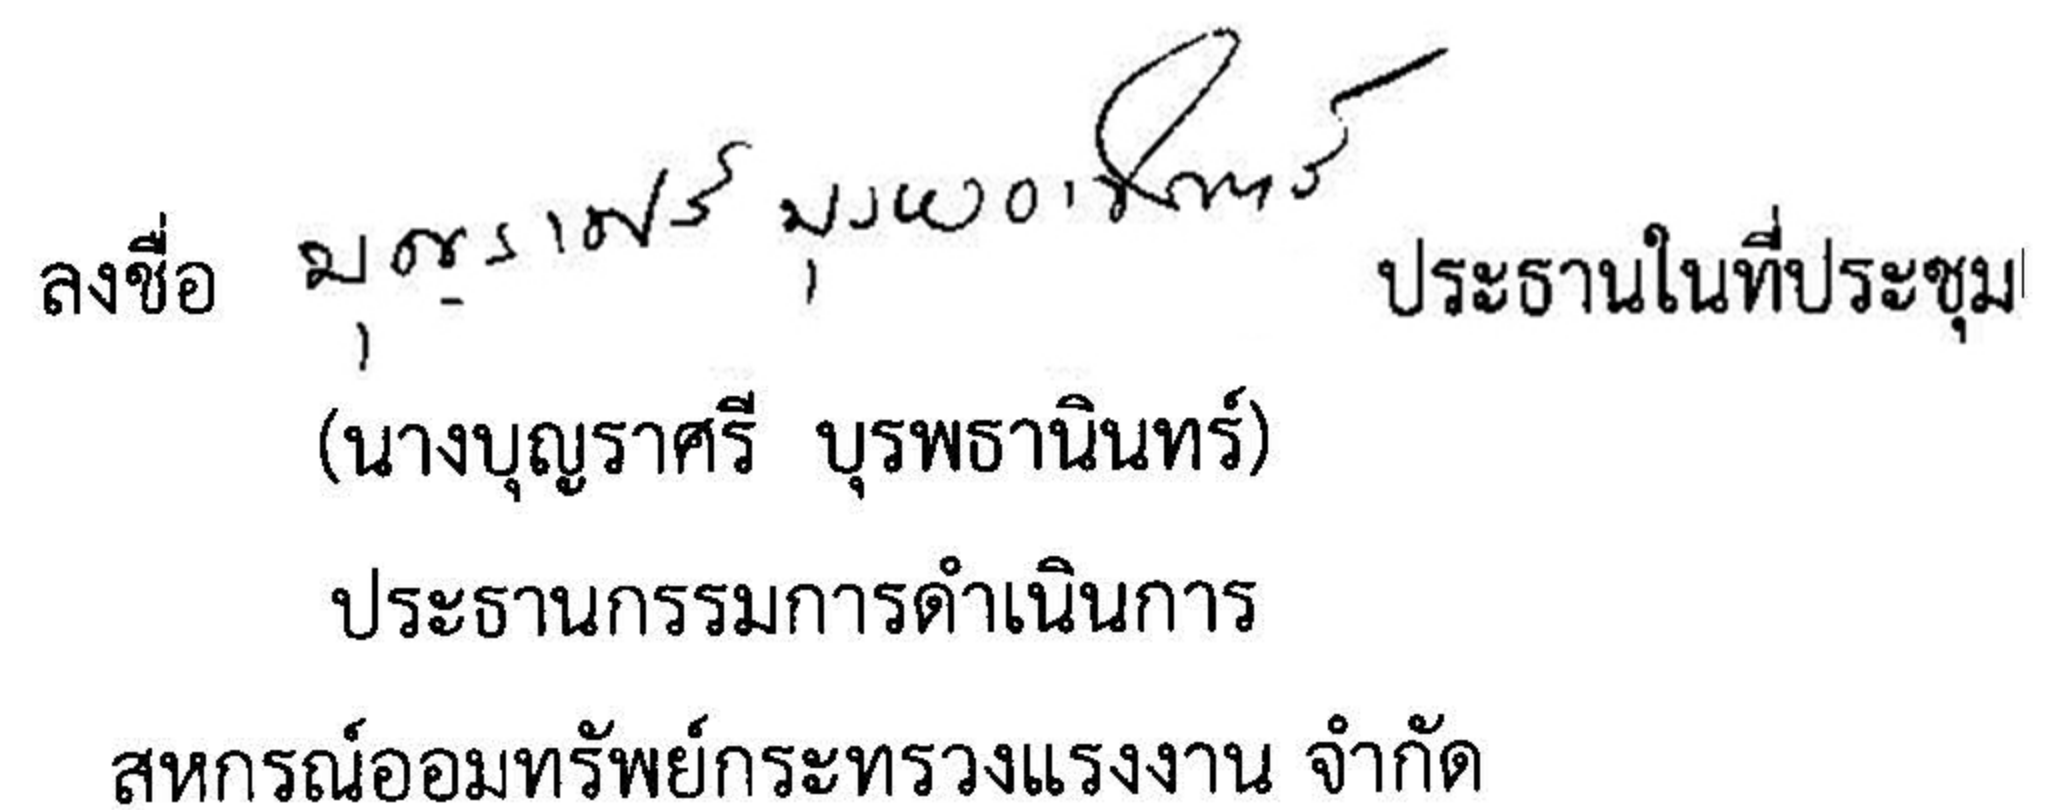 ลงชื่อ บุญราศรี บุรพธานินทร์ ประธานในที่ประชุม
(นางบุญราศรี บุรพธานินทร์)
ประธานกรรมการดำเนินการ
สหกรณ์ออมทรัพย์กระทรวงแรงงาน จำกัด